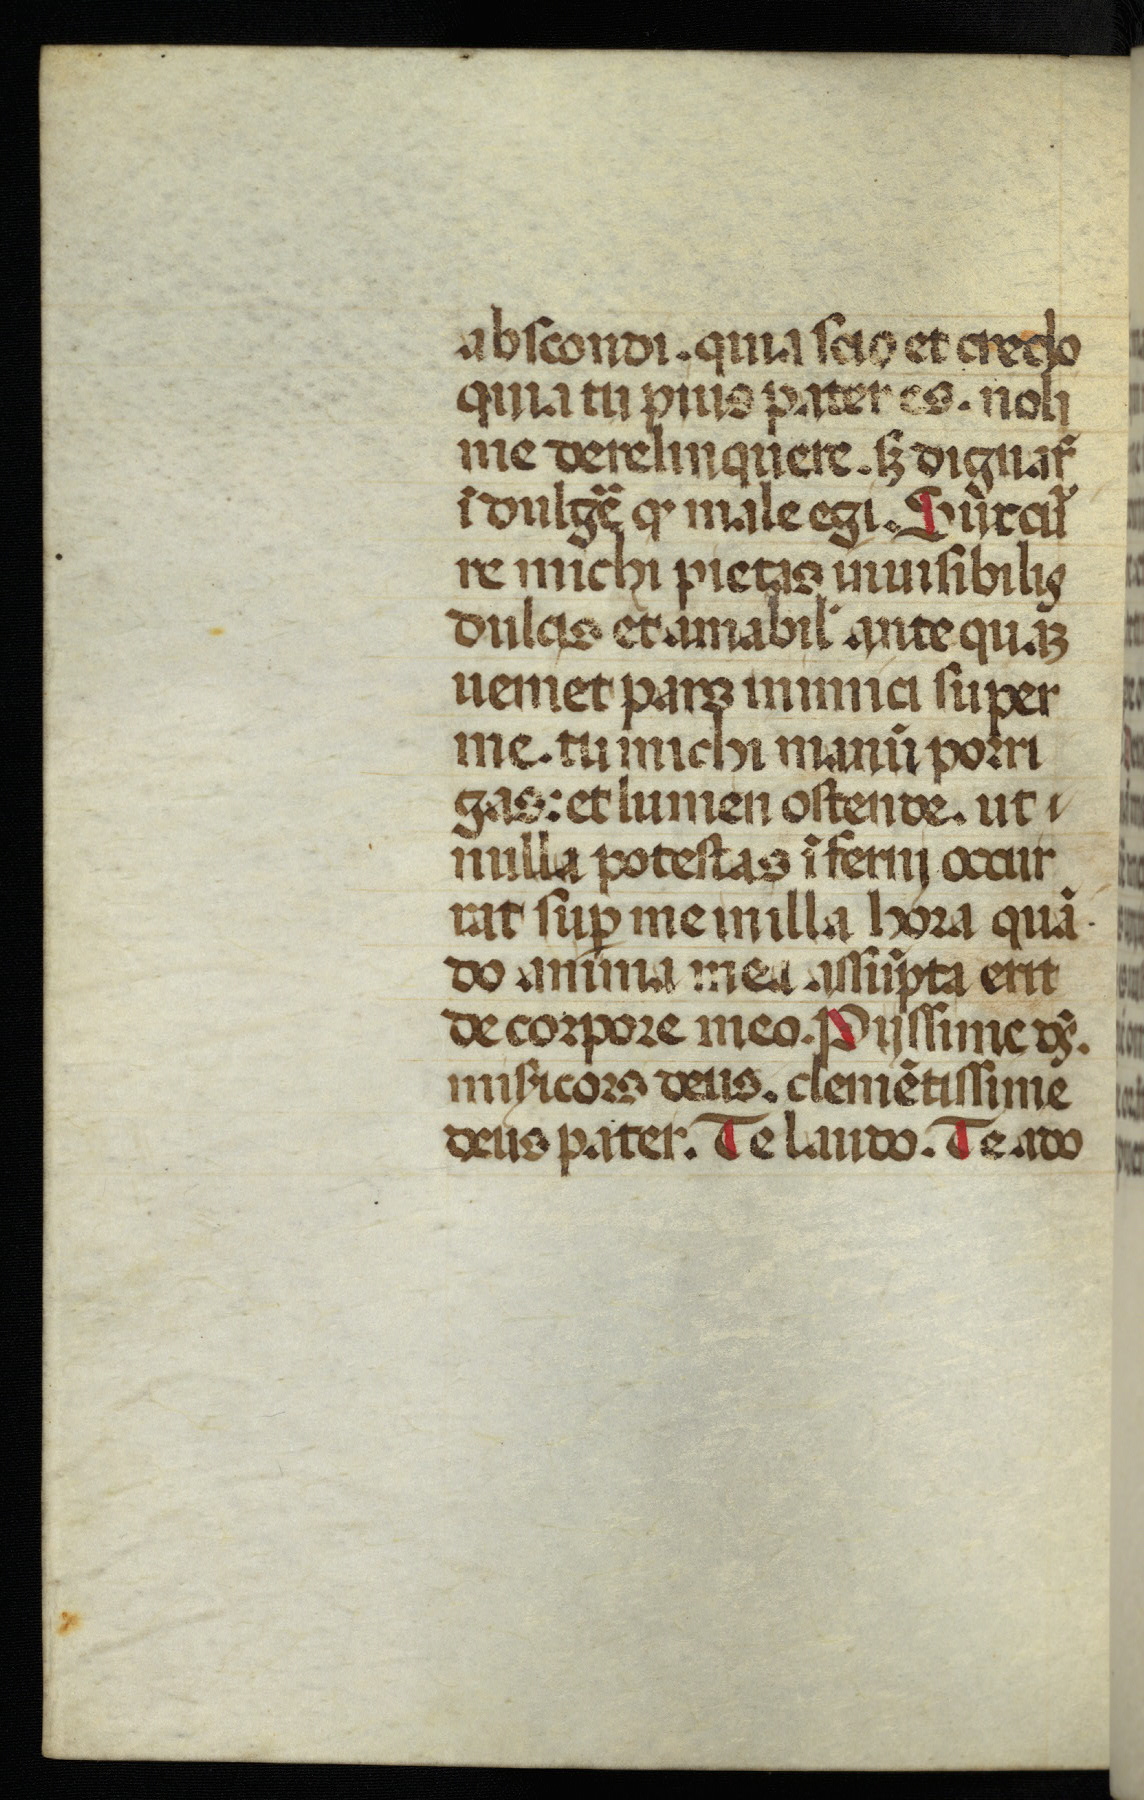 abscondi. quia scio et credo
quia tu pius pater es. noli
me derelinquere. sꝫ dignar̃
ĩdulgẽ ꝙ male egi. Sũrcur̃
re michi pietas inuisibilis
dulcis et amabil' ante quaꝫ
ueniet pars inimici super
me. tu michi manũ porri
gas: et lumen ostende. ut i
nulla potestas ĩferni occur
rat suꝑ me in illa hora quã
do anima mea assũpta erit
de corpore meo. Pijssime ds̃.
misicors deus. clemẽtissime
deus pater. Te laudo. Te ado